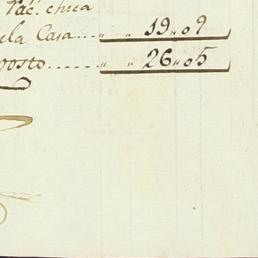 Vac. chica
ela Casa... " " 19 " 0 9
posto...... " " 26 " 0 5